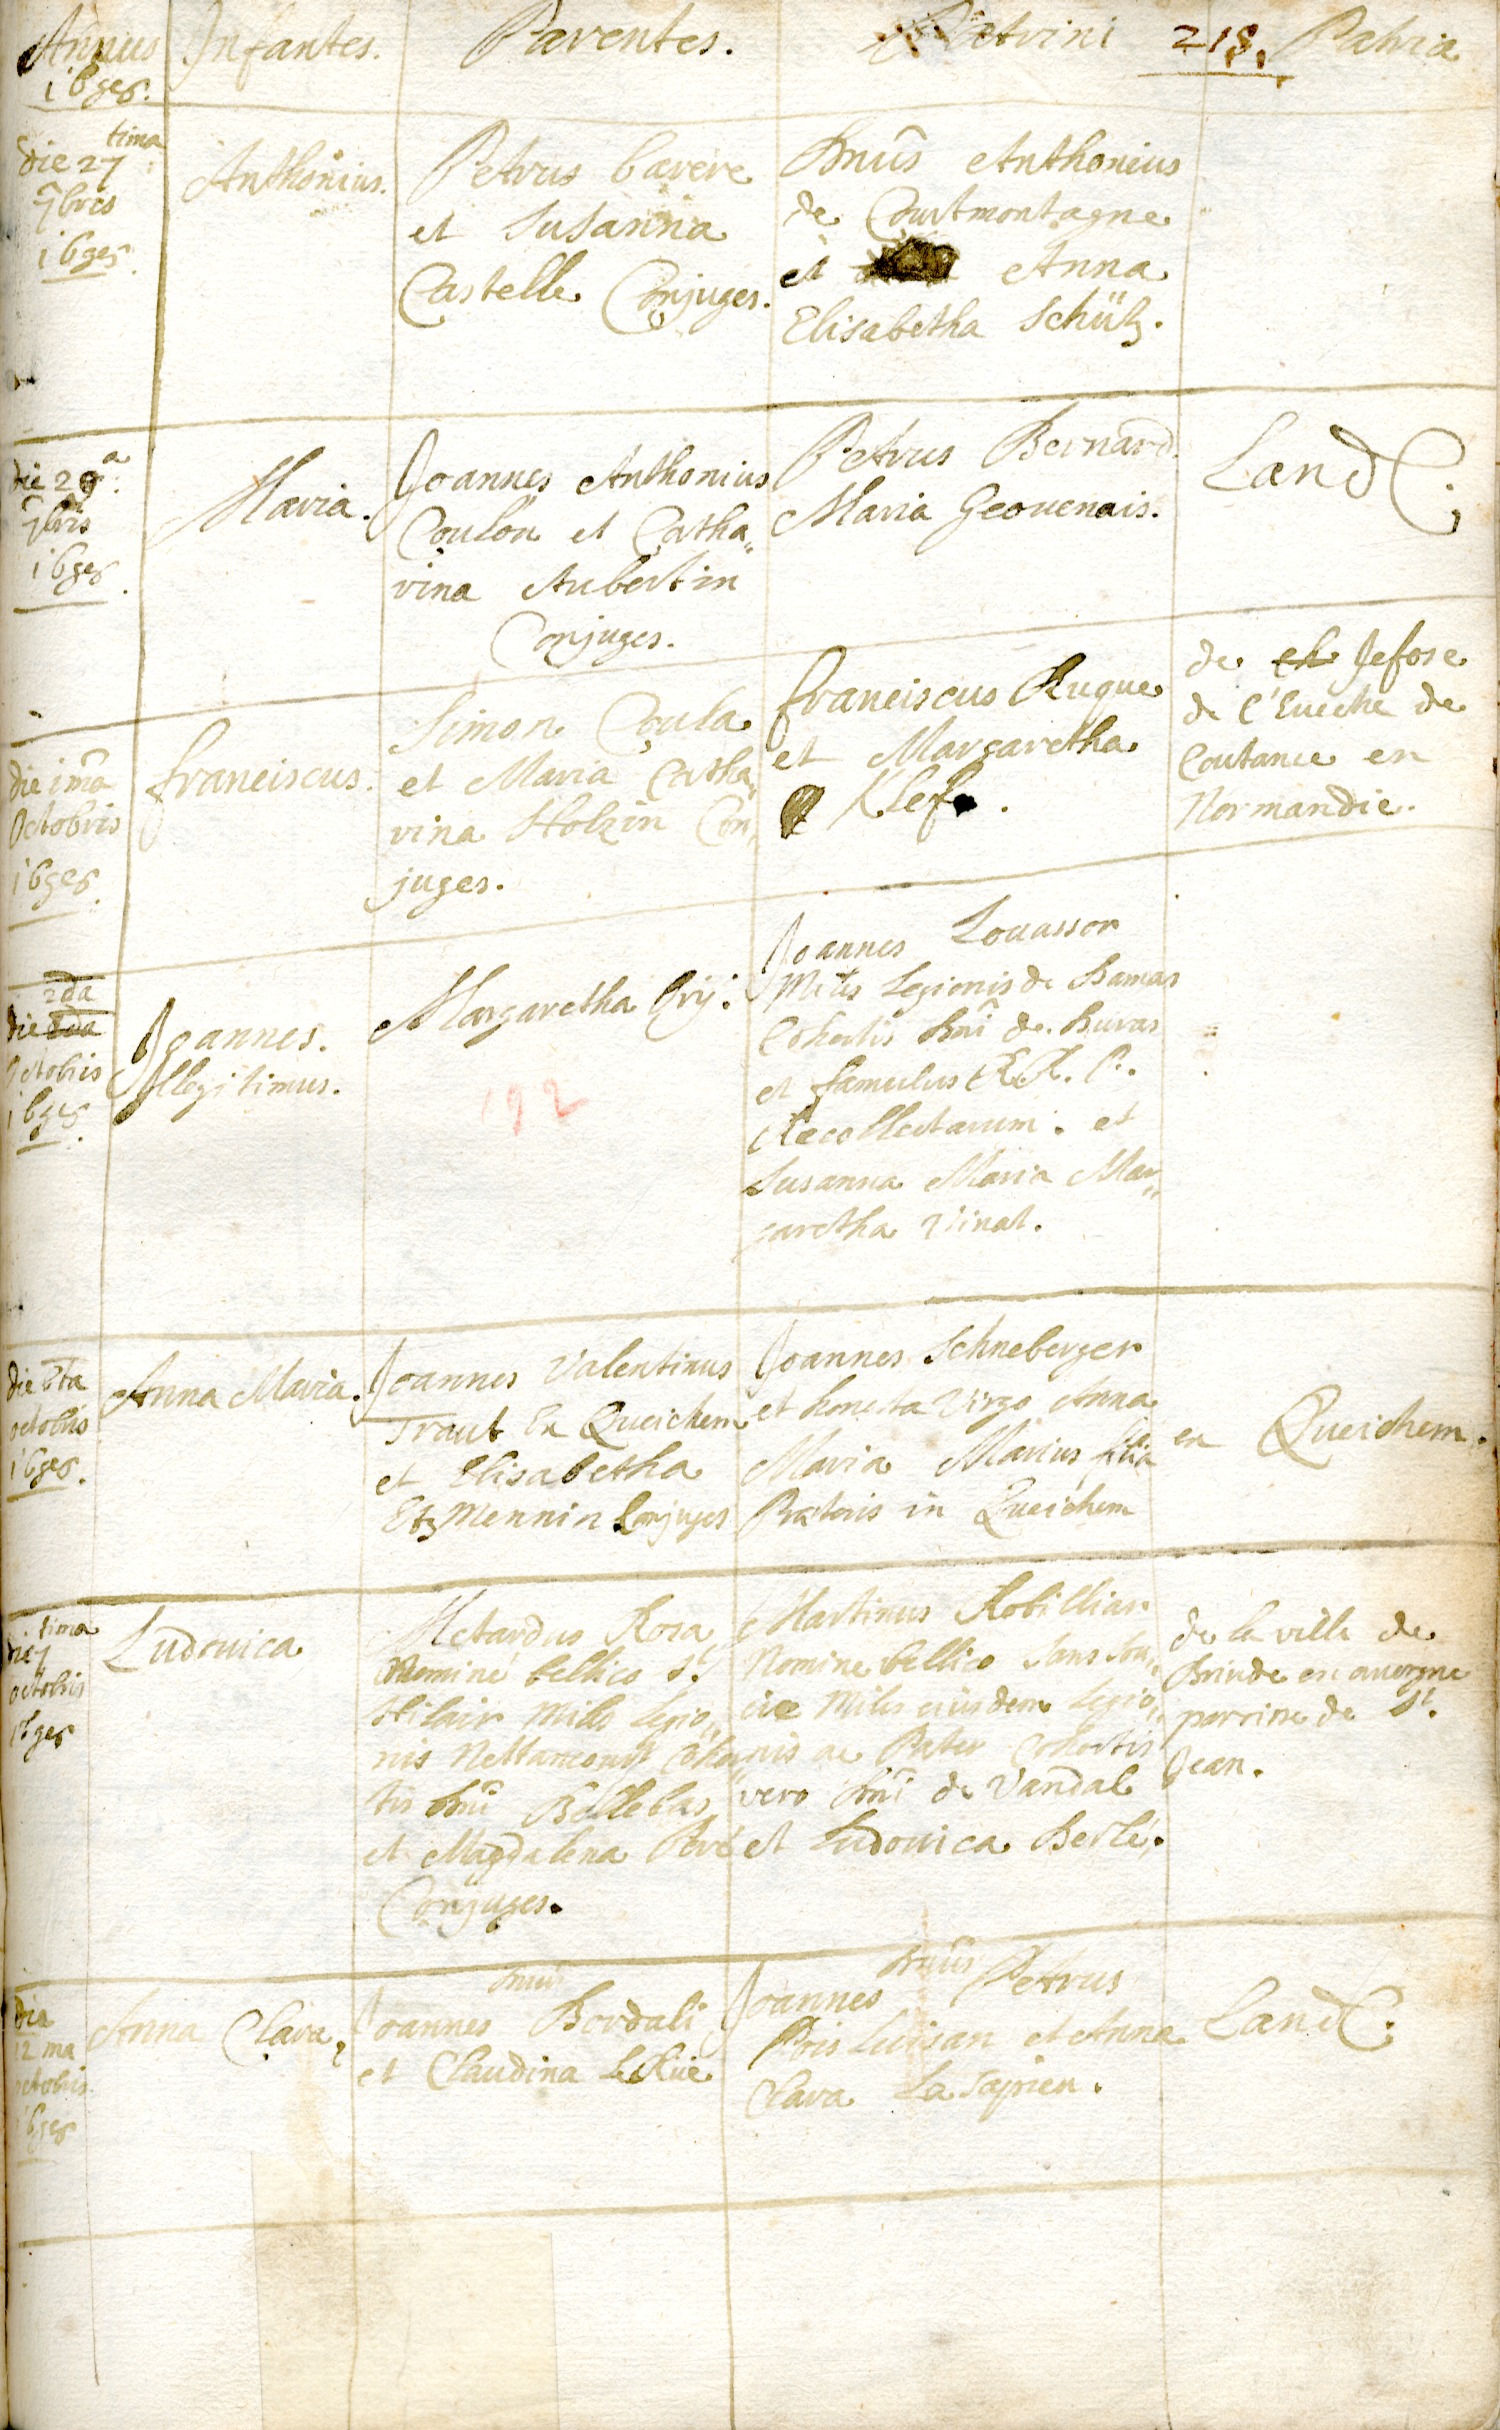 Annus Infantes. Parentes. Patrini 218. Patria
1698.
die 27 tima
7bris
1698.
Anthonius.
Petrus Carere
et Susanna
Castelle Conjuges.
Dnus Anthonius
de Courtmontagne
et Anna
Elisabetha Schütz.
die 29a
7bris
1698.
Maria.
Joannes Anthonius
Coulon et Catha„
rina Aubertin
Conjuges.
Petrus Bernard.
Maria Geouenais.
Land C.
die 1ma
Octobris
1698.
franciscus.
Simon Coula
et Maria Catha„
rina Holzin Con„
juges.
franciscus Ruque
et Margaretha
Klef.
de Jefose
de l'Eueche de
Coutance en
Normandie.
2da
die
Octobris
1698.
Joannes.
Illegitimus.
Margaretha Grij.
192
Joannes Louasson
Miles Legionis de Damas
Cohortis Dni de Buras
et famulus R.R. P.
Recollectarum. et
Susanna Maria Mar„
garetha Vinat.
die 6ta
octobris
1698.
Anna Maria.
Joannes Valentinus
Traut Ex Queichem
et Elisabetha
Etzmennin Conjuges
Joannes Schneberger
et honesta Virgo Anna
Maria Marius filia
Prætoris in Queichem
en Queichem.
die 7 tima
octobris
1698
Ludouica
Metardus Rosa
Nomine bellico St
Hilair Miles Legio„
nis Nettancourt Cohor„
tis Dni Bellebas
et Magdalena Peré
Conjuges.
Martinus Robillian
Nomine bellico Sans Sou„
cie Miles eiusdem Legio„
nis ac Pater Cohortis
vero Dni de Vandal
et Ludouica Berlé.
de la ville de
Briude en auvergne
parrisse de St.
Jean.
die
12 ma
octobris
1698
Anna Clara,
Dnus
Joannes Bordali
et Claudina LeRüe
Dnus
Joannes Petrus
Pris Luisan et Anna
Clara La Sapien.
Land C.